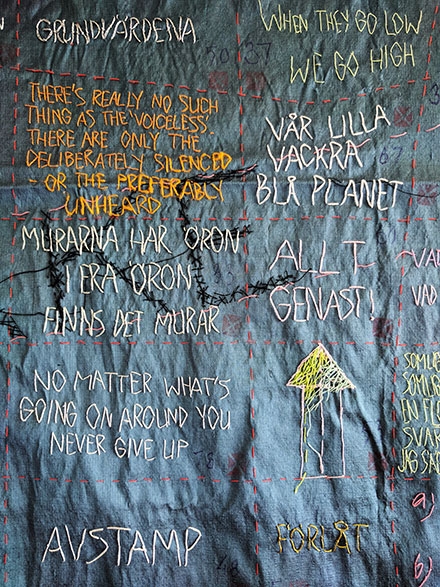 GRUNDVÄRDENA
WHEN THEY GO LOW
WE GO HIGH
THERE'S REALLY NO SUCH
THING AS THE 'VOICELESS'.
THERE ARE ONLY THE
DELIBERATELY SILENCED
- OR THE PREFERABLY
UNHEARD
VÅR LILLA
VACKRA
BLÅ PLANET
MURARNA HAR ÖRON
I ERA ÖRON
FINNS DET MURAR
ALLT
GENAST!
VAD
NO MATTER WHAT'S
GOING ON AROUND YOU
NEVER GIVE UP
AVSTAMP
FÖRLÅT
a)
b)